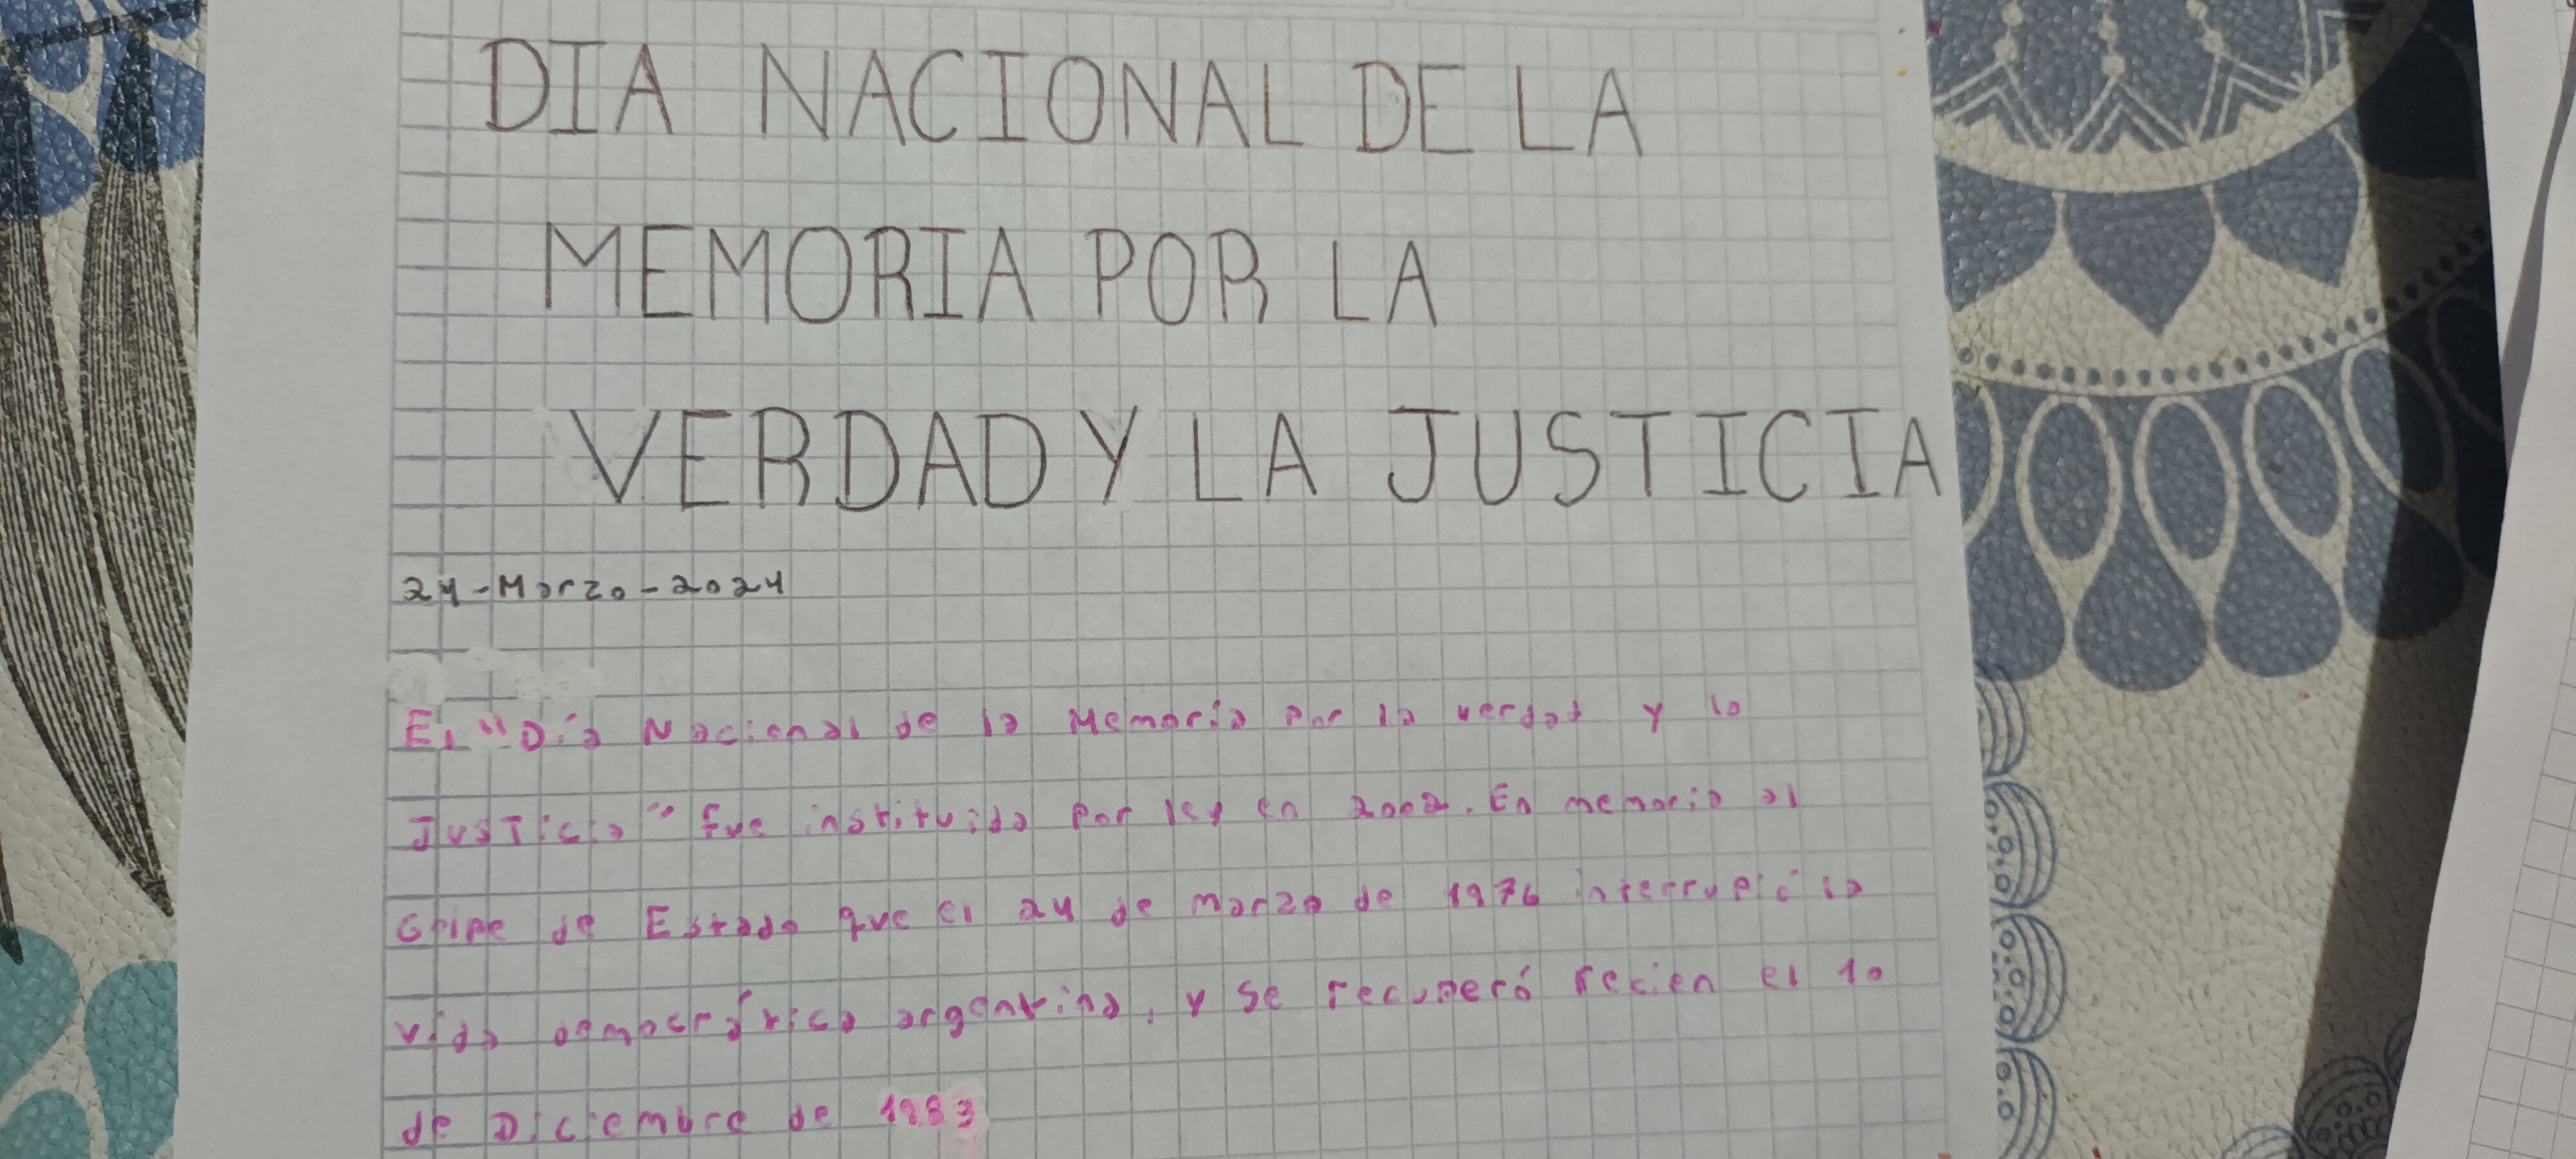 DIA NACIONAL DE LA
MEMORIA POR LA
VERDAD Y LA JUSTICIA
24-Marzo-2024
El "Día Nacional de la Memoria por la verdad y la
JUSTicia" fue instituida por ley en 2002. En memoria al
Golpe de Estado que el 24 de marzo de 1976 interrupió la
vida democrática argentina, y se recuperó recien el 10
de Diciembre de 1983